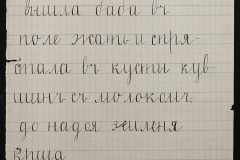 вышла баба въ
поле жать и спря-
тала въ кусты кув-
шинъ съ молокомъ.
до надоя